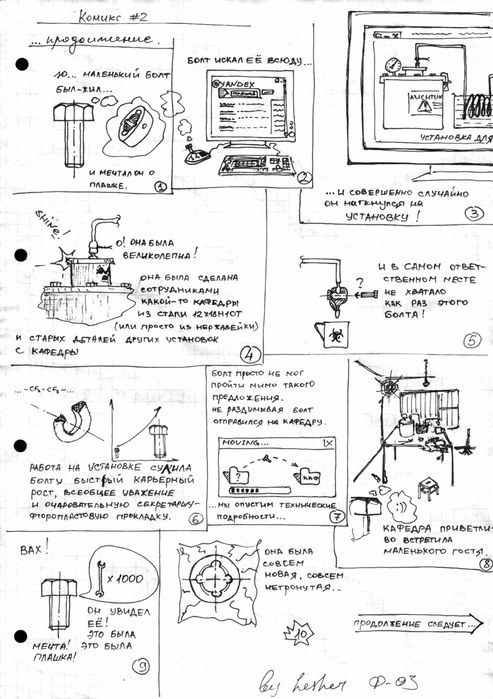 Комикс #2
...продолжение.
Ю... маленький болт
был-жил...
и мечтал он о
плашке.
1
Болт искал её всюду...
YANDEX
2
УСТАНОВКА ДЛЯ
...и совершенно случайно
он наткнулся на
установку!
3
SHINE!
О! Она была
великолепна!
Она была сделана
сотрудниками
какой-то кафедры
из стали 12Х18Н10Т
(или просто из нержавейки)
и старых деталей других установок
с кафедры
4
?
И в самом ответ-
ственном месте
не хватало
как раз этого
болта!
5
...-CF₂-CF₂-...
Работа на установке сулила
болту быстрый карьерный
рост, всеобщее уважение
и очаровательную секретаршу-
фторопластовую прокладку.
6
Болт просто не мог
пройти мимо такого
предложения.
Не раздумывая болт
отправился на кафедру.
MOVING... X
?
КАФ
...Мы опустим технические
подробности...
7
:)
Кафедра приветли-
во встретила
маленького гостя.
8
Вах!
x1000
Он увидел
её!
Это была
Мечта! Это была
Плашка!
9
Она была
совсем
новая, совсем
нетронутая...
10
Продолжение следует...
by
Ф-03